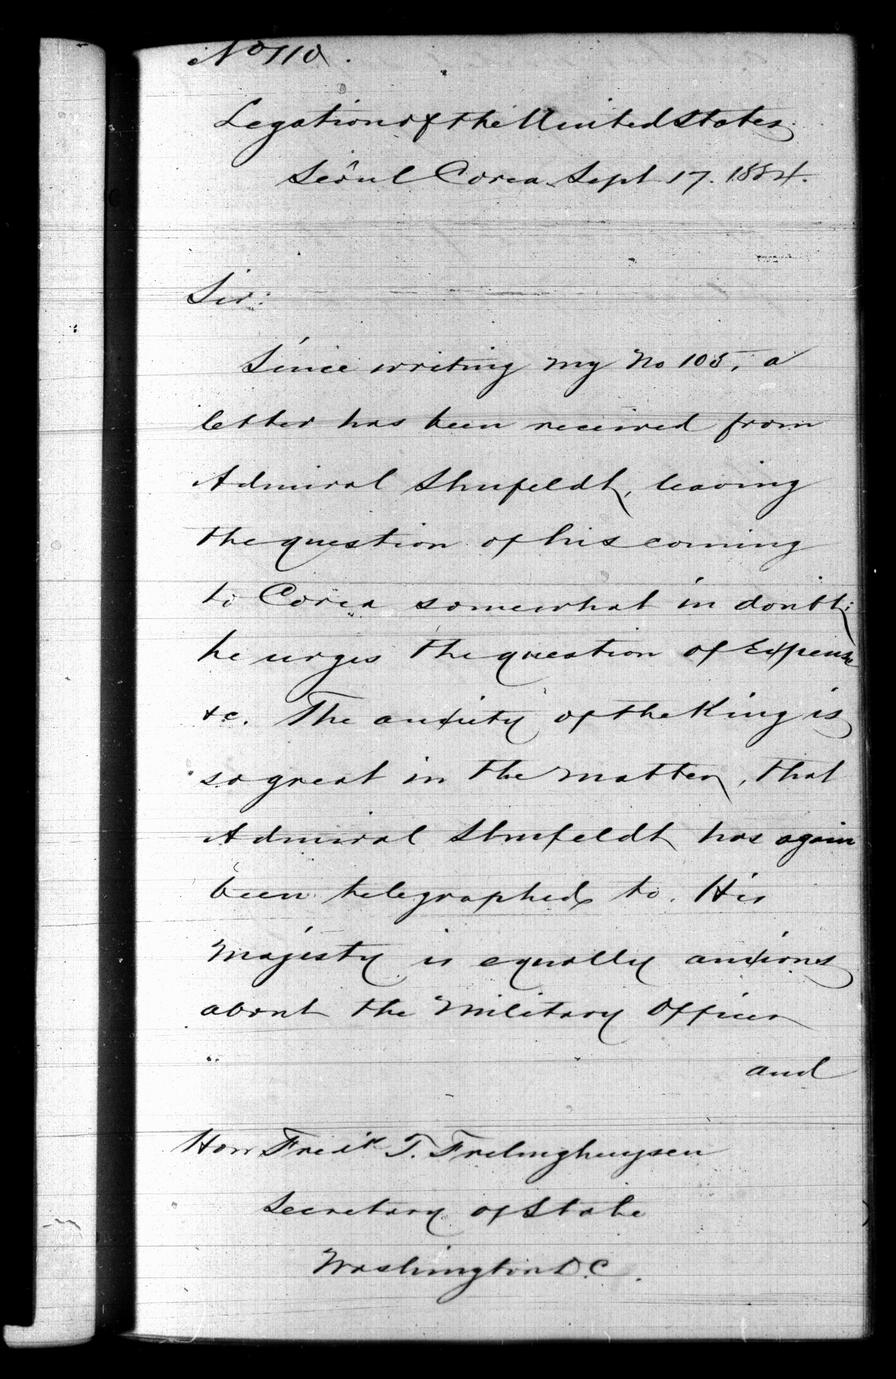 No 110.
Legation of the United States
Seoul Corea. Sept 17. 1884.
Sir:
Since writing my No 105, a
letter has been received from
Admiral Shufeldt, leaving
the question of his coming
to Corea somewhat in doubt;
he urges the question of Expense
&c. The anxiety of the King is
so great in the matter, that
Admiral Shufeldt has again
been telegraphed to. His
Majesty is equally anxious
about the Military Officer
and
Hon Fredk T. Frelinghuysen
Secretary of State
Washington D.C.